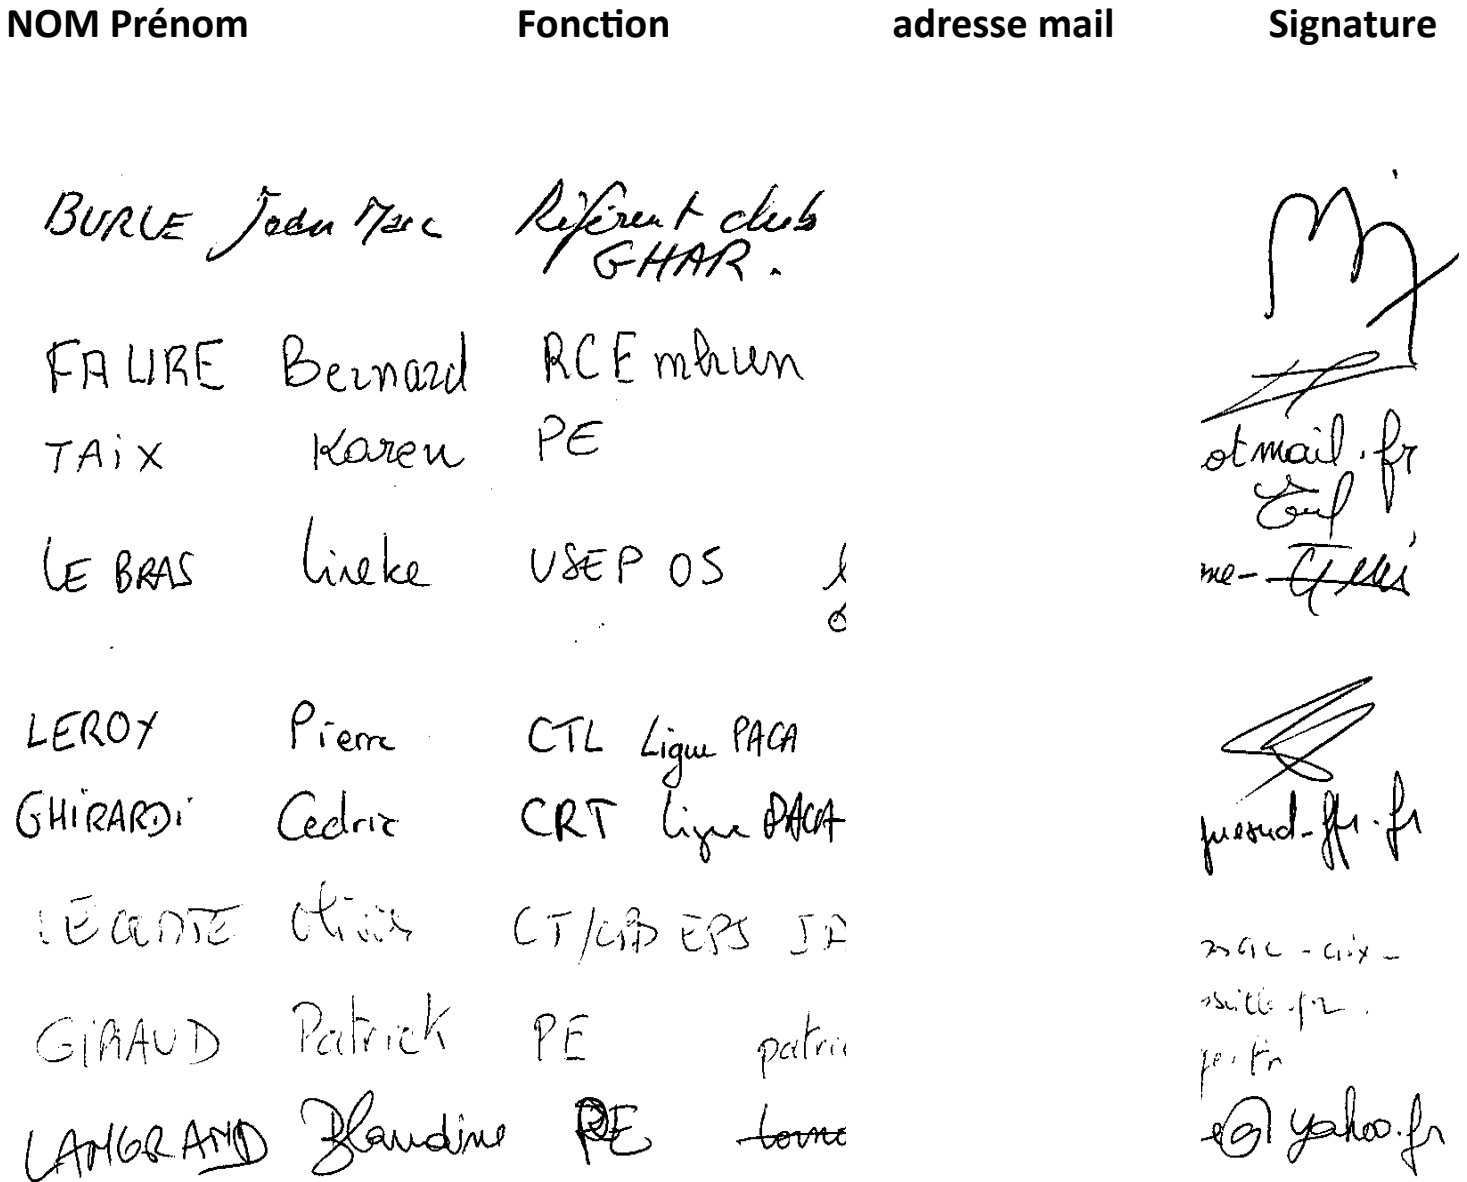 NOM Prénom Fonction adresse mail Signature
BURLE Jean Marc Référent club
GHAR.
FAURE Bernard RC Embrun
TAiX Karen PE otmail.fr
LE BRAS Lineke USEP 05 me-
LEROY Pierre CTL Ligue PACA
GHiRARDi Cedric CRT Ligue PACA guesud-ffr.fr
LECOMTE CT/CPD EPS - aix -
GIRAUD Patrick PE patric
LANGRAND Blandine PE @yahoo.fr